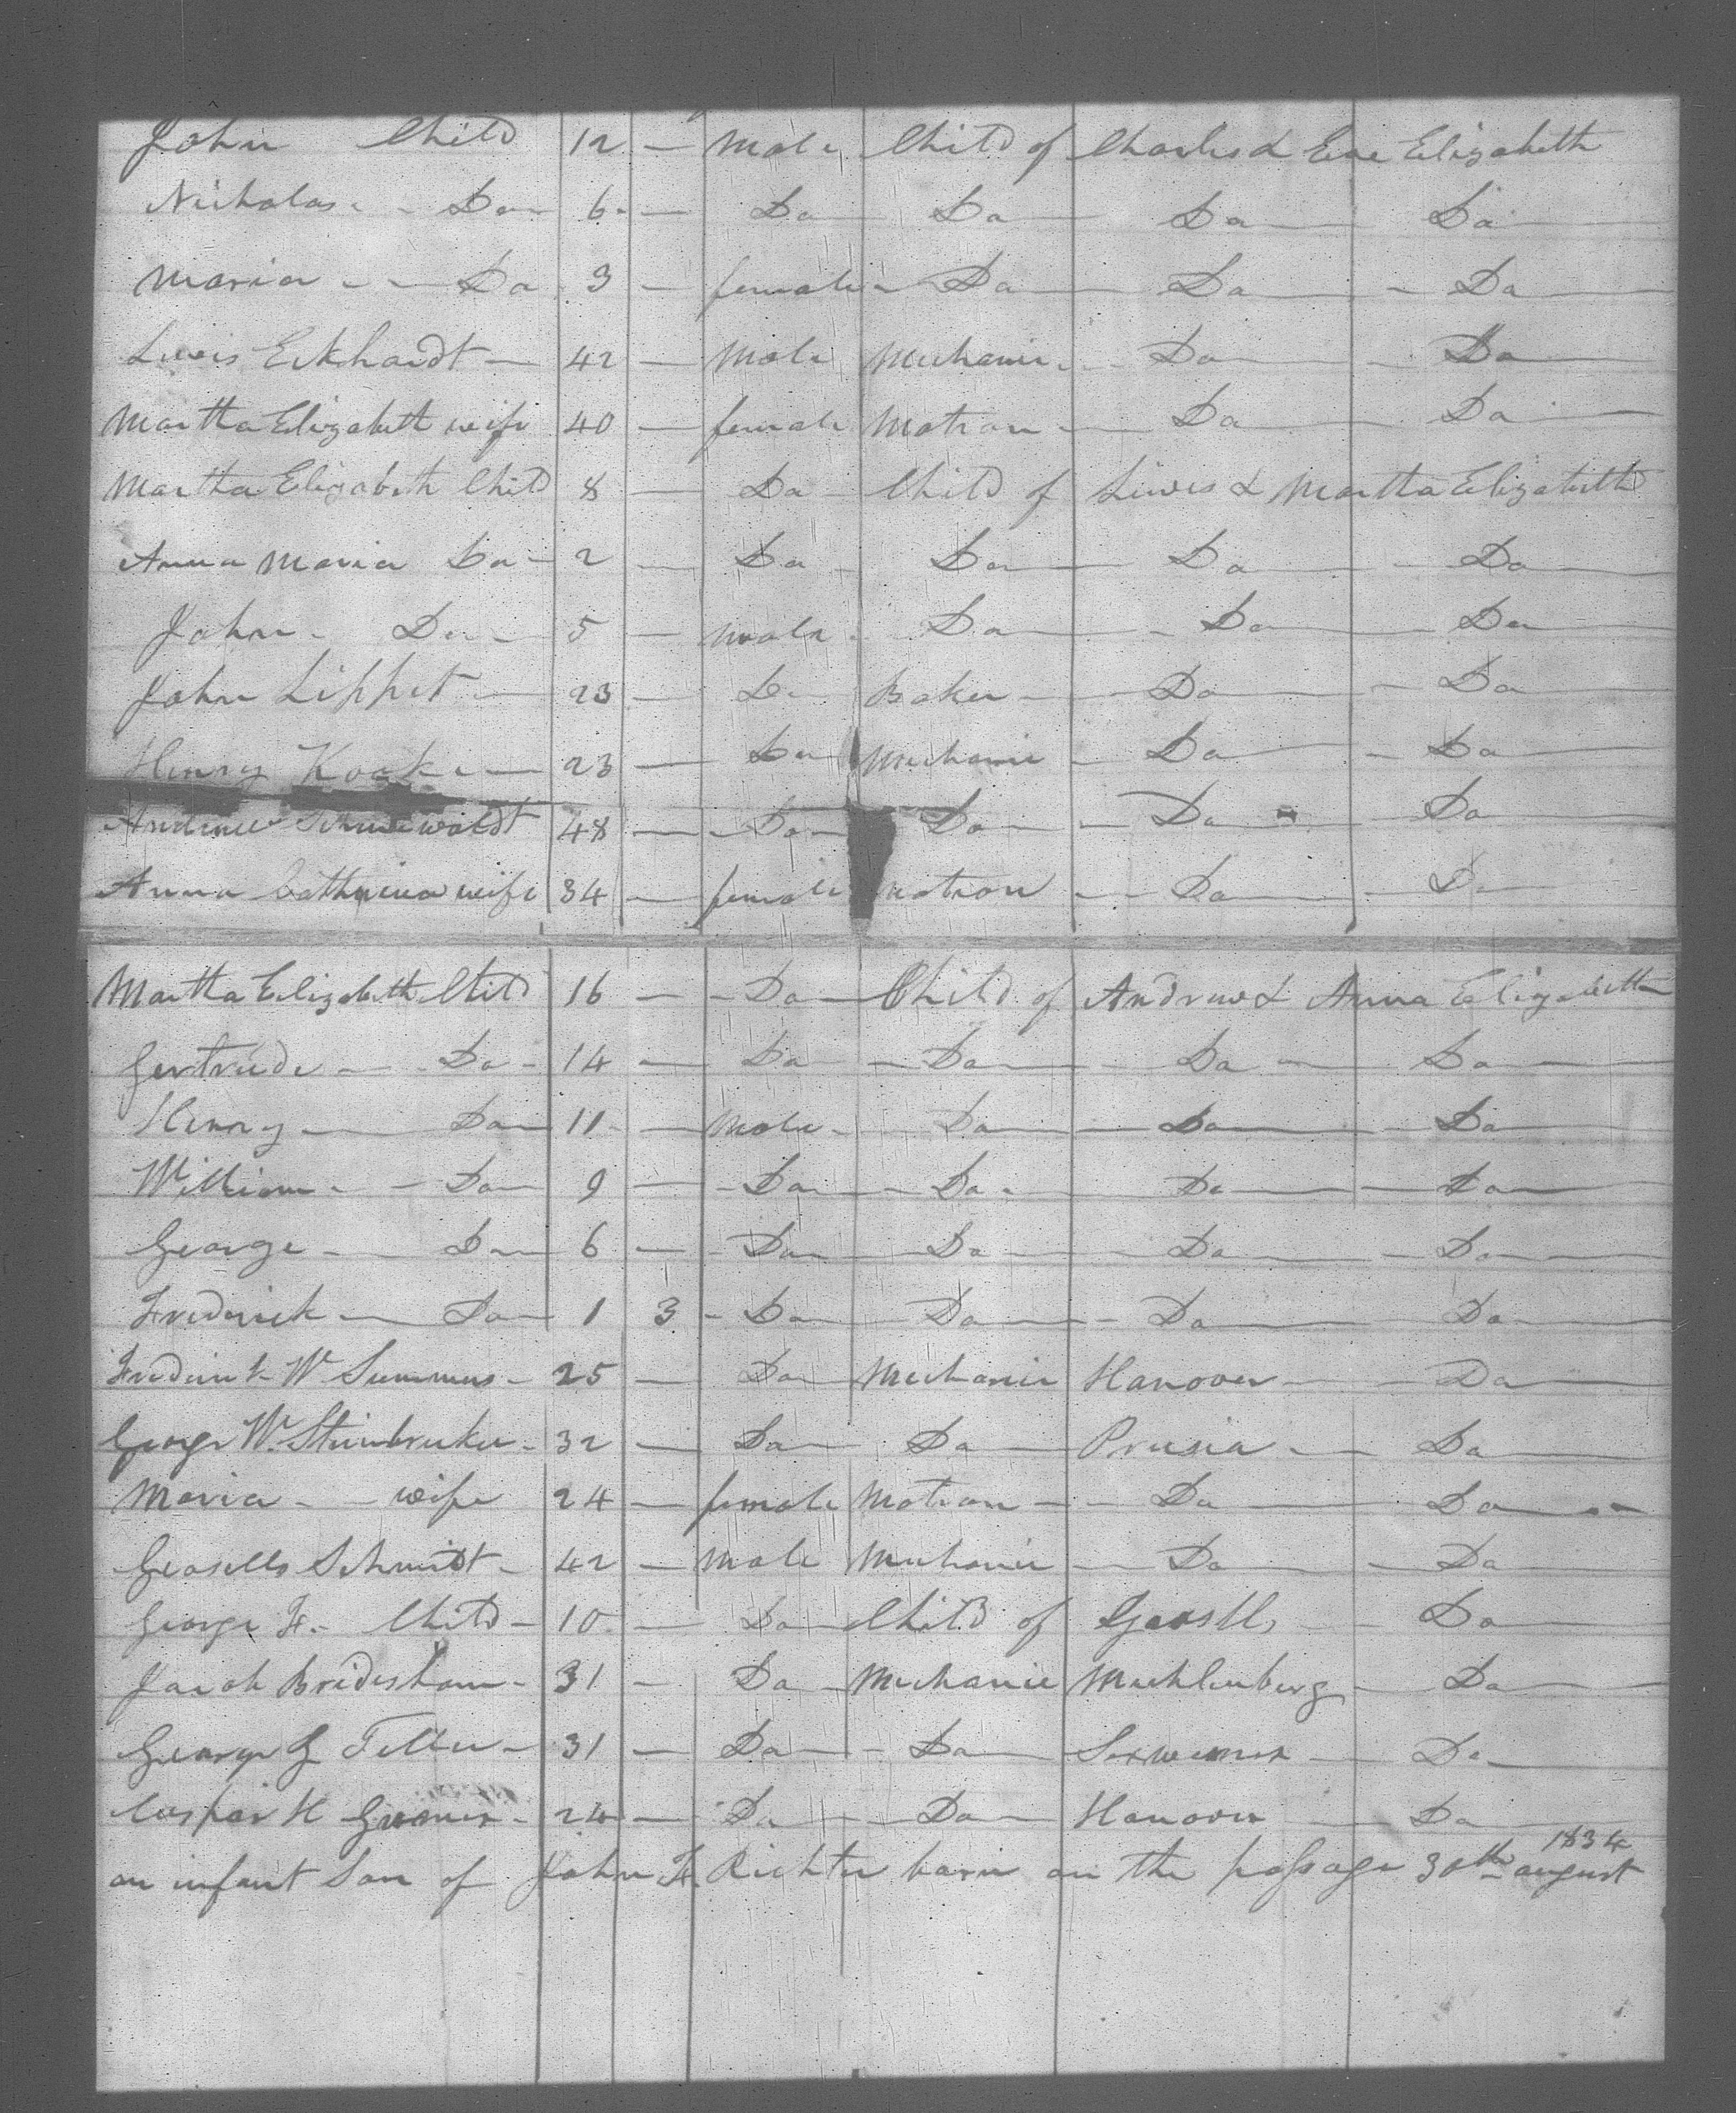 John Child 12 — Male Child of Charles & Eve Elizabeth
Nicholas - - Do - 6 - — Do — Do — Do — Do —
Maria - - Do 3 — female - Do — Do — - Do —
Lewis Eckhardt — 42 — Male Mechanic - - Do - Do —
Martha Elizabeth wife 40 — female Matron - Do Do —
Martha Elizabeth Child 8 — Do - Child of Lewis & Martha Elizabeth
Anna Maria Do - 2 — Do - Do — Do — - Do —
John - Do - 5 — Male - Do — - Do — Do —
John Lippet — 23 — Do Baker — - Do — - Do —
Henry — 23 — Do Mechanic - Do — - Do —
Andrew 48 — - Do - Do — - Do — - Do
Anna Cathrina wife 34 — female matron - - Do — - Do
Martha Elizabeth Child 16 — - Do — Child of Andrew & Anna Elizabeth
Gertrude — - Do - 14 — Do - Do — - Do — Do —
Henry — Do — 11 - — Male - Do — - Do — - Do —
William - - Do — 9 — - Do — - Do - Do — - Do —
George - - Do — 6 — - Do — - Do — - Do — - Do —
Frederick — Do — 1 3 - Do — Do — - Do — Do —
Frederick W Summers - 25 — Do — Mechanic Hanover - - Do —
George W. Steinbruker - 32 — Do — Do — Prusia - — Do —
Maria - - wife 24 — female Matron - - Do — Do —
Schmidt - 42 — Male Mechanic - Do — - Do —
George F. - Child - 10 — Do — Child of Do —
Jacob 31 — Do — Mechanic Muchlenberg - Do —
George G - 31 — Do — - Do — Do —
Caspar H - 24 — Do — - Do — Hanover — Do —
1834
an infant Son of John F. Richter born on the passage 30th august